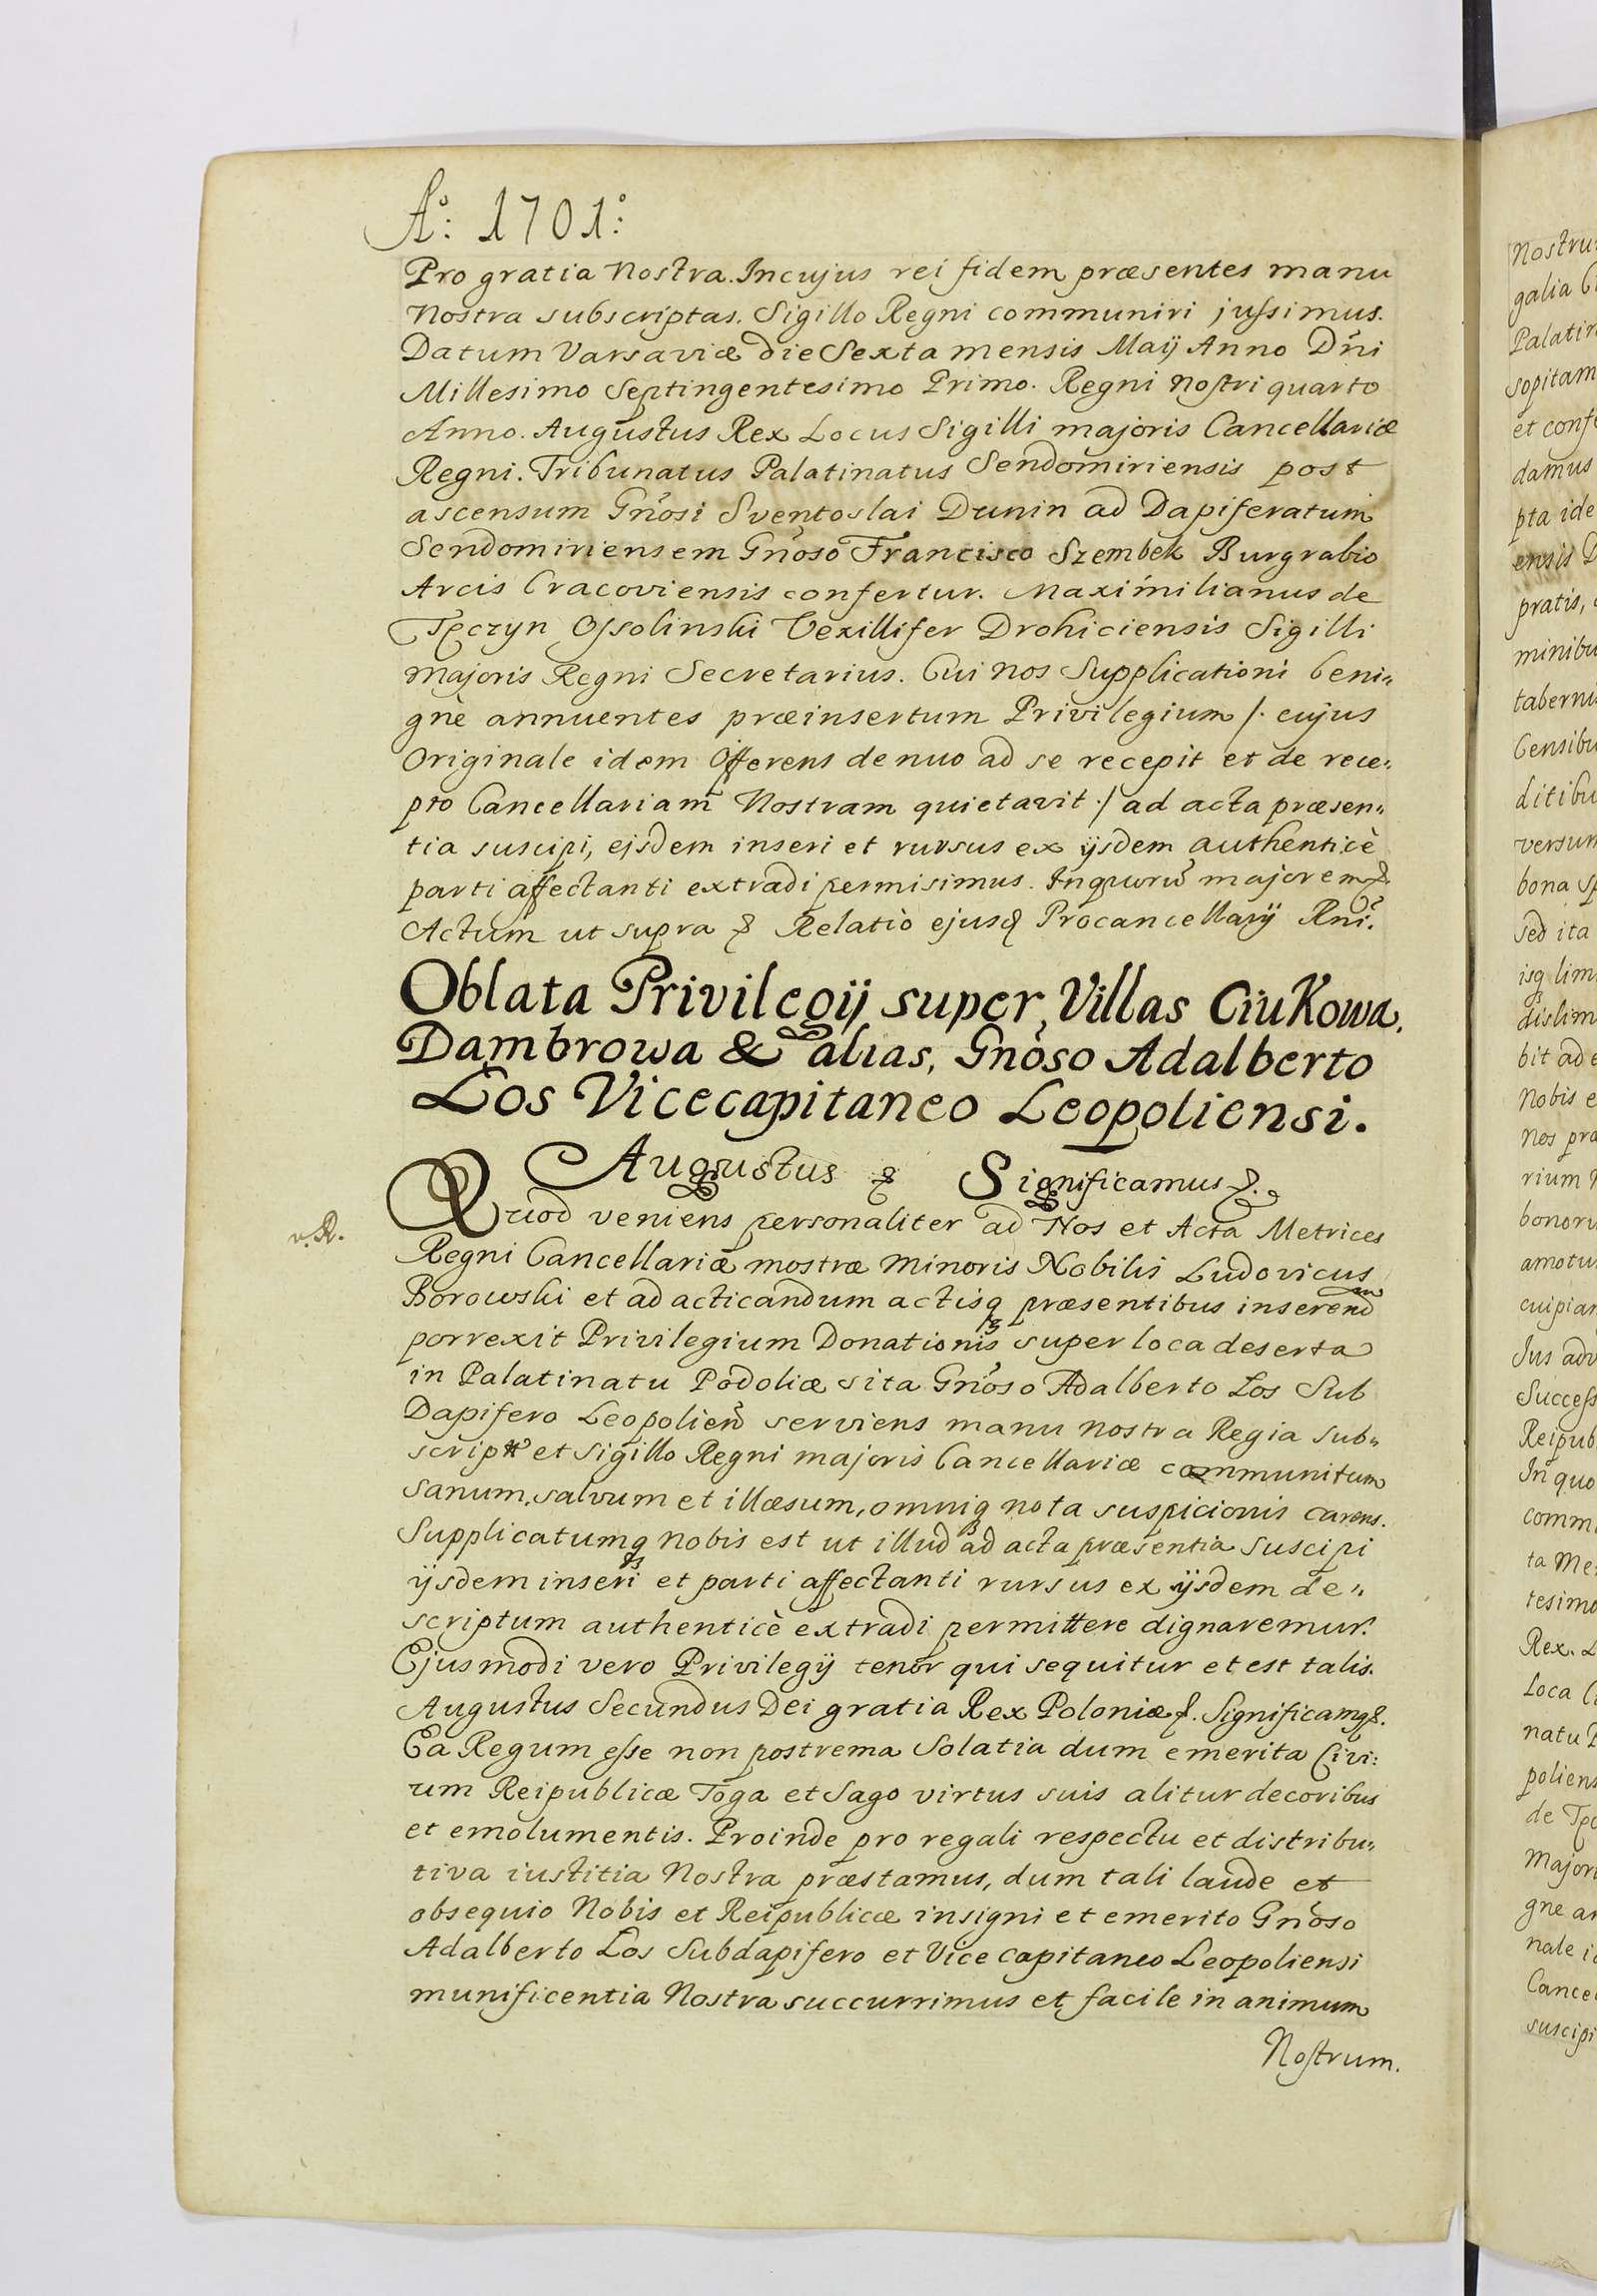 Aº: 1701º:
Pro gratia Nostra. In cujus rei fidem præsentes manu
Nostra subscriptas. Sigillo Regni communiri jussimus.
Datum Varsaviæ die Sexta mensis Maij Anno Dñi
Millesimo Septingentesimo Primo. Regni Nostri quarto
Anno. Augustus Rex Locus Sigilli majoris Cancellariæ
Regni. Tribunatus Palatinatus Sendomiriensis post
ascensum Gñosi Sventoslai Dunin ad Dapiferatum
Sendomiriensem Gñoso Francisco Szembek Burgrabio
Arcis Cracoviensis confertur. Maximilianus de
Tęczyn Ossolinski Vexillifer Drohiciensis Sigilli
majoris Regni Secretarius. Cui nos Supplicationi beni„
gnè annuentes præinsertum Privilegium /. cujus
Originale idem Offerens de nuo ad se recepit et de rece„
pto Cancellariam Nostram quietavit ./ ad acta præsen„
tia suscipi, ejsdem inseri et rursus ex ijsdem authenticè
parti affectanti extradi permisimus. In quorũ majorem &.
Actum ut supra & Relatio ejusq Procancellarij Rñi.
Oblata Privilegij super Villas Ciukowa,
Dambrowa & alias, Gñoso Adalberto
Łos Vicecapitaneo Leopoliensi.
Augustus & Significamus &.
v. R.
Quod veniens personaliter ad Nos et Acta Metrices
Regni Cancellariæ mostræ Minoris Nobilis Ludovicus
Borowski et ad acticandum actisq præsentibus inserend
porrexit Privilegium Donationis super loca deserta
in Palatinatu Podoliæ sita Gñoso Adalberto Łos Sub
Dapifero Leopolieñ serviens manu nostra Regia sub„
script et sigillo Regni majoris Cancellariæ communitum
sanum, salvum et illæsum, omniq nota suspicionis carens.
Supplicatumq nobis est ut illud ad acta præsentia suscipi
ijsdem inseri et parti affectanti rursus ex ijsdem de„
scriptum authenticè extradi permittere dignaremur.
Ejusmodi vero Privilegij tenor qui sequitur et est talis.
Augustus Secundus Dei gratia Rex Poloniæ &. Significamq &.
Ea Regum esse non postrema Solatia dum emerita Civi:
um Reipublicæ Toga et Sago virtus suis alitur decoribus
et emolumentis. Proinde pro regali respectu et distribu„
tiva iustitia Nostra præstamus, dum tali laude et
obsequio Nobis et Reipublicæ insigni et emerito Gñoso
Adalberto Łos Subdapifero et Vice capitaneo Leopoliensi
munificentia Nostra succurrimus et facile in animum
Nostrum.